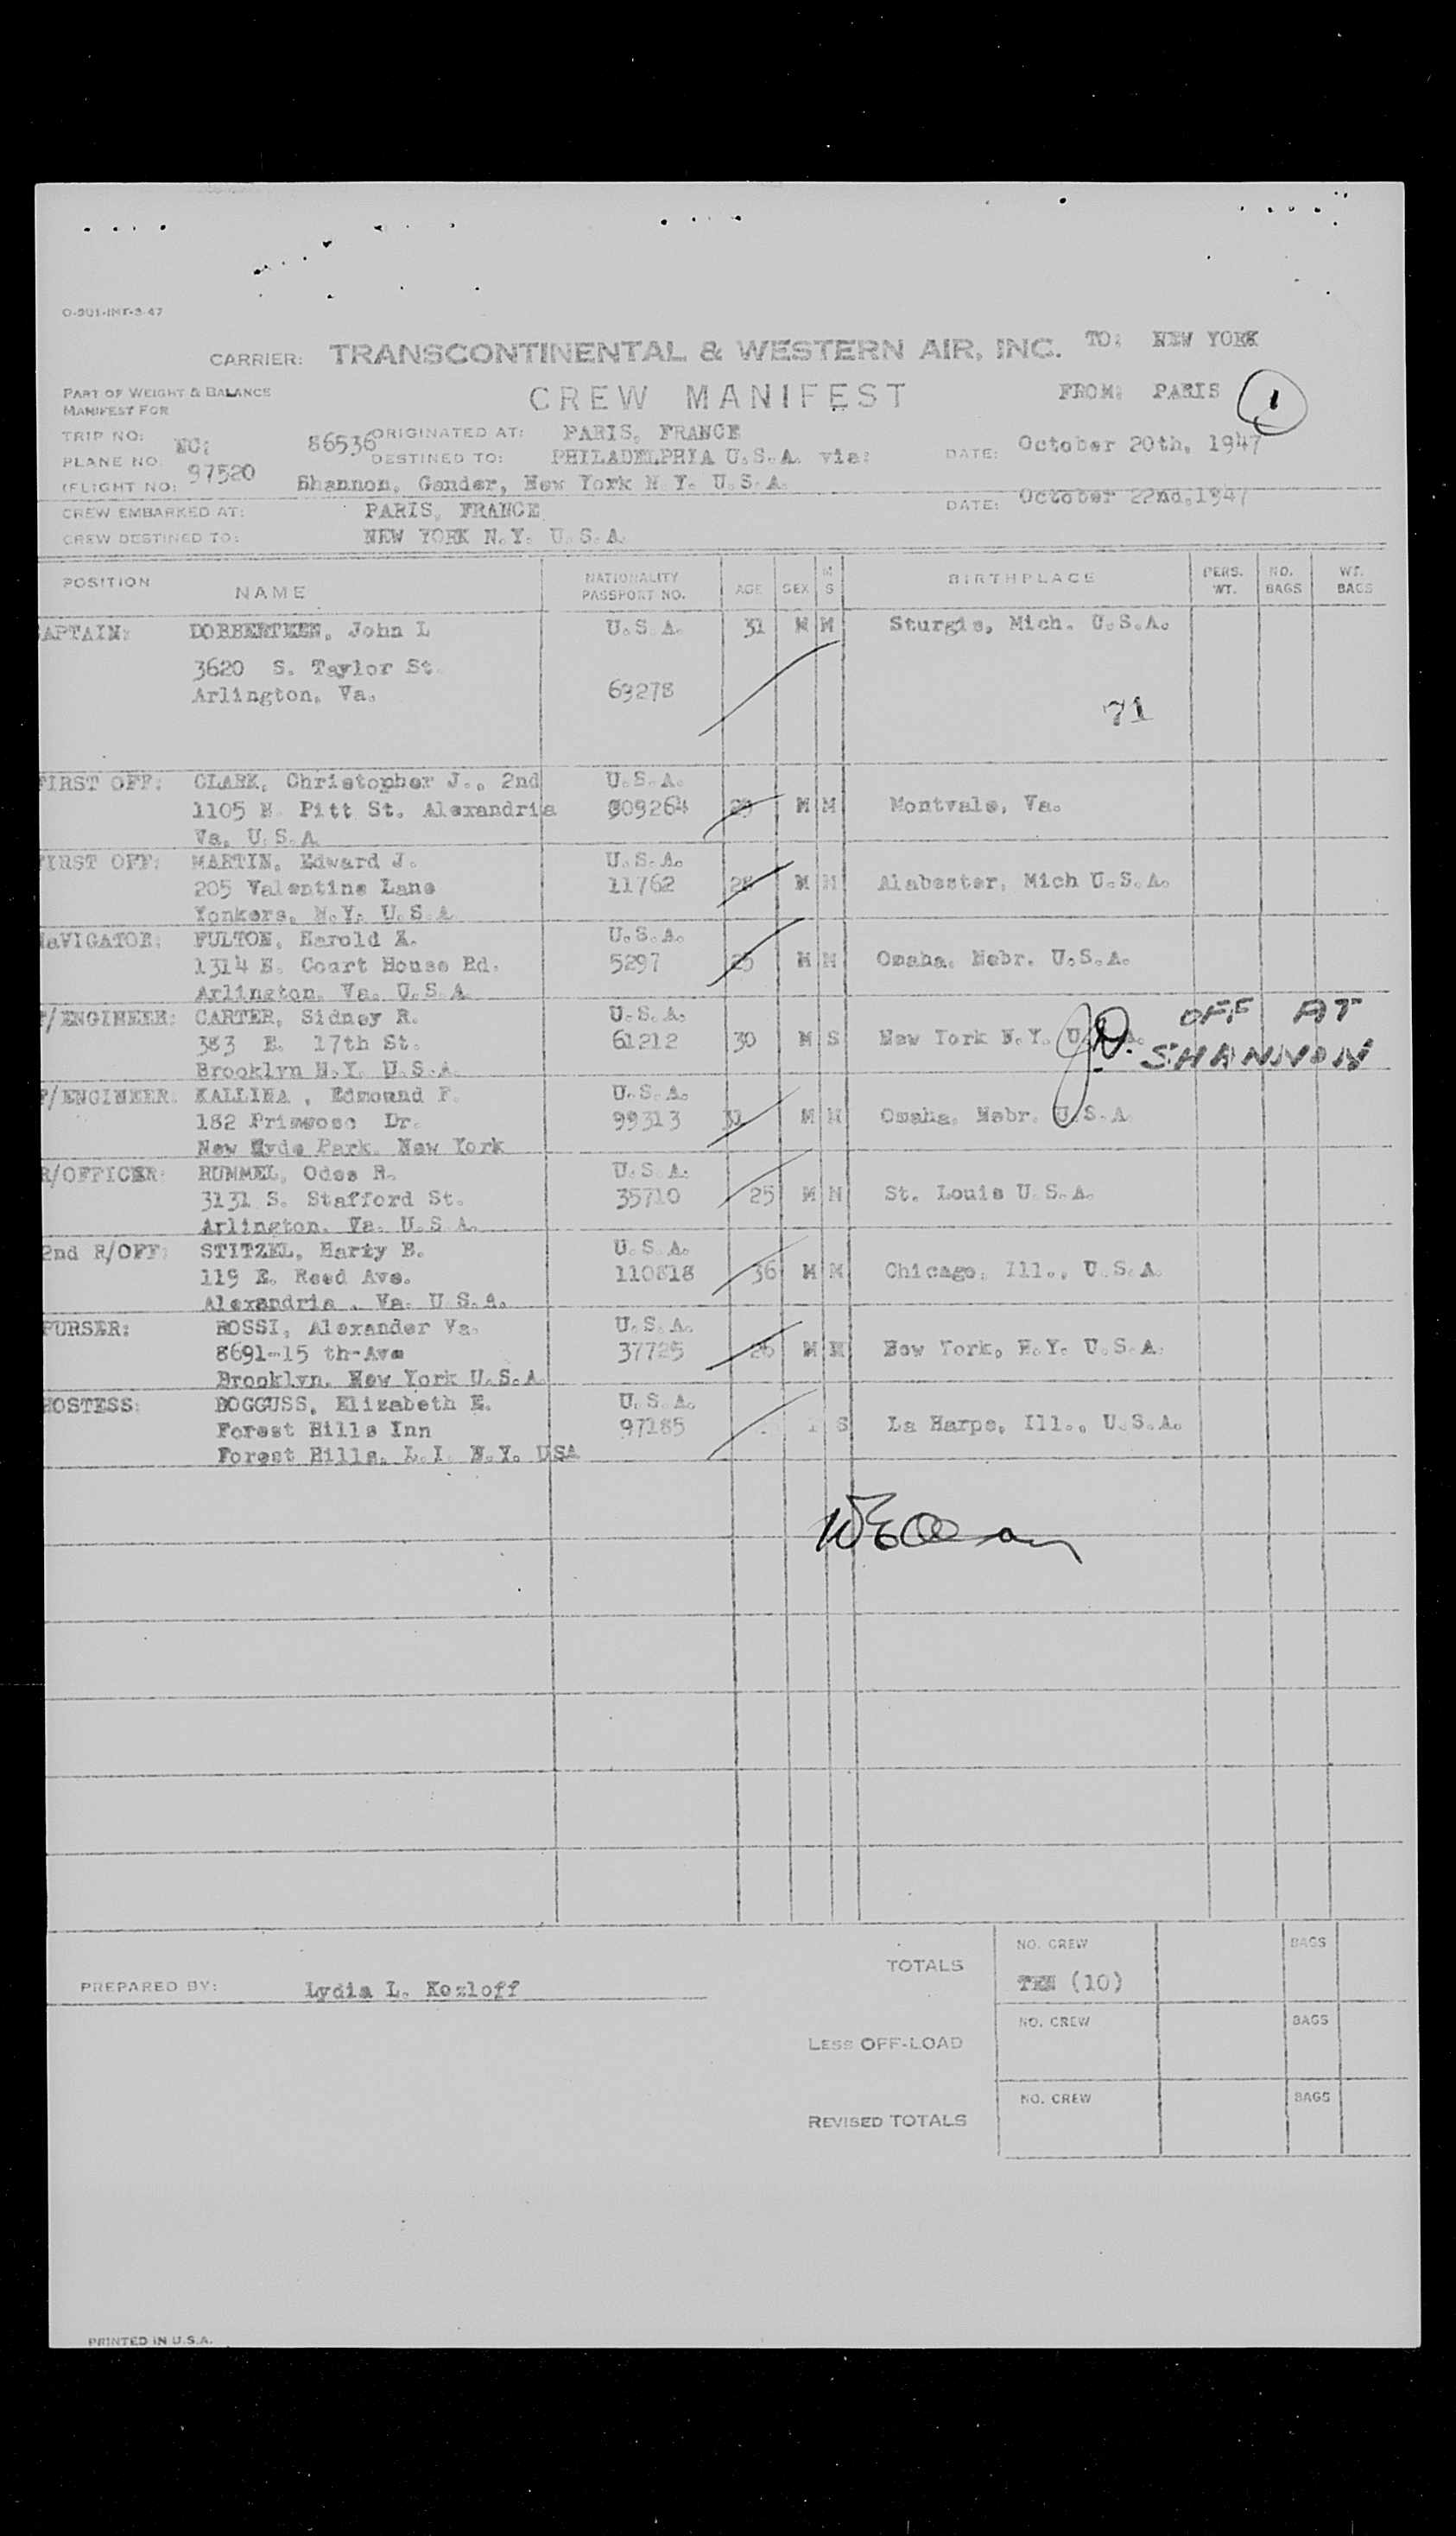 O-901-INT-3-47
CARRIER: TRANSCONTINENTAL & WESTERN AIR, INC. TO: NEW YORK
PART OF WEIGHT & BALANCE CREW MANIFEST FROM: PARIS 1
MANIFEST FOR
TRIP NO: NC: 86536 ORIGINATED AT: PARIS, FRANCE DATE: October 20th, 1947
PLANE NO 97520 DESTINED TO: PHILADELPHIA U.S.A. via:
(FLIGHT NO: Shannon, Gander, New York N.Y. U.S.A.
CREW EMBARKED AT: PARIS, FRANCE DATE: October 22nd, 1947
CREW DESTINED TO: NEW YORK N.Y. U.S.A.
POSITION NAME NATIONALITY PASSPORT NO. AGE SEX M S BIRTHPLACE PERS. WT. NO. BAGS WT. BAGS
APTAIN: DOBBERTEEN, John L U.S.A. 31 M M Sturgis, Mich. U.S.A.
3620 S. Taylor St.
Arlington, Va. 69278
71
FIRST OFF: CLARK, Christopher J., 2nd U.S.A.
1105 N. Pitt St. Alexandria 809264 29 M M Montvale, Va.
Va. U.S.A.
FIRST OFF: MARTIN, Edward J. U.S.A.
205 Valentine Lane 11762 28 M M Alabaster, Mich U.S.A.
Yonkers, N.Y. U.S.A
NaVIGATOR: FULTON, Harold A. U.S.A.
1314 N. Court House Rd. 5297 25 M M Omaha, Nebr. U.S.A.
Arlington, Va. U.S.A
F/ENGINEER: CARTER, Sidney R. U.S.A. OFF AT
383 E. 17th St. 61212 30 M S New York N.Y. U.S.A. J.D. SHANNON
Brooklyn N.Y. U.S.A.
F/ENGINEER. KALLINA , Edmound F. U.S.A.
182 Primrose Dr. 99313 31 M M Omaha, Nebr. U.S.A.
New Hyde Park. New York
R/OFFICER: RUMMEL, Odes R. U.S.A.
3131 S. Stafford St. 35710 25 M M St. Louis U.S.A.
Arlington, Va. U.S.A.
2nd R/OFF: STITZEL, Harry B. U.S.A.
119 E. Reed Ave. 110818 36 M M Chicago, Ill., U.S.A.
Alexandria , Va. U.S.A.
PURSER: ROSSI, Alexander Va. U.S.A.
8691-15 th-Ave 37725 26 M M New York, N.Y. U.S.A.
Brooklyn, New York U.S.A.
HOSTESS: BOGGUSS, Elizabeth E. U.S.A.
Forest Hills Inn 97185 S La Harpe, Ill., U.S.A.
Forest Hills, L.I. N.Y. USA
NO. CREW BAGS
TOTALS TEN (10)
PREPARED BY: Lydia L. Kozloff
NO. CREW BAGS
LESS OFF-LOAD
NO. CREW BAGS
REVISED TOTALS
PRINTED IN U.S.A.